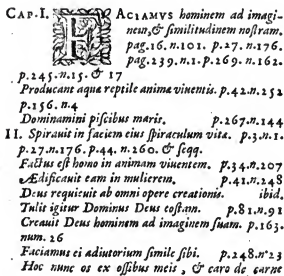 CAP. I. FACIAMVS hominem ad imagi-
nem, & similitudinem nostram.
pag. 16. n. 101. p. 27. n. 176.
pag. 239. n. 1. p. 269. n. 162.
p. 245. n. 15. & 17
Producant aqua reptile anima viuentis. p. 42. n. 252
p. 156. n. 4
Dominamini piscibus maris. p. 267. n. 144
II. Spirauit in faciem eius spiraculum vitæ. p. 3. n. 1.
p. 27. n. 176. p. 44. n. 260. & seqq.
Factus est homo in animam viuentem. p. 34. n. 207
Ædificauit eam in mulierem. p. 41. n. 248
Deus requieuit ab omni opere creationis. ibid.
Tulit igitur Dominus Deus costam. p. 81. n. 91
Creauit Deus hominem ad imaginem suam. p. 163.
num. 26
Faciamus ei adiutorium simile sibi. p. 248. n. 23
Hoc nunc os ex ossibus meis, & caro de carne